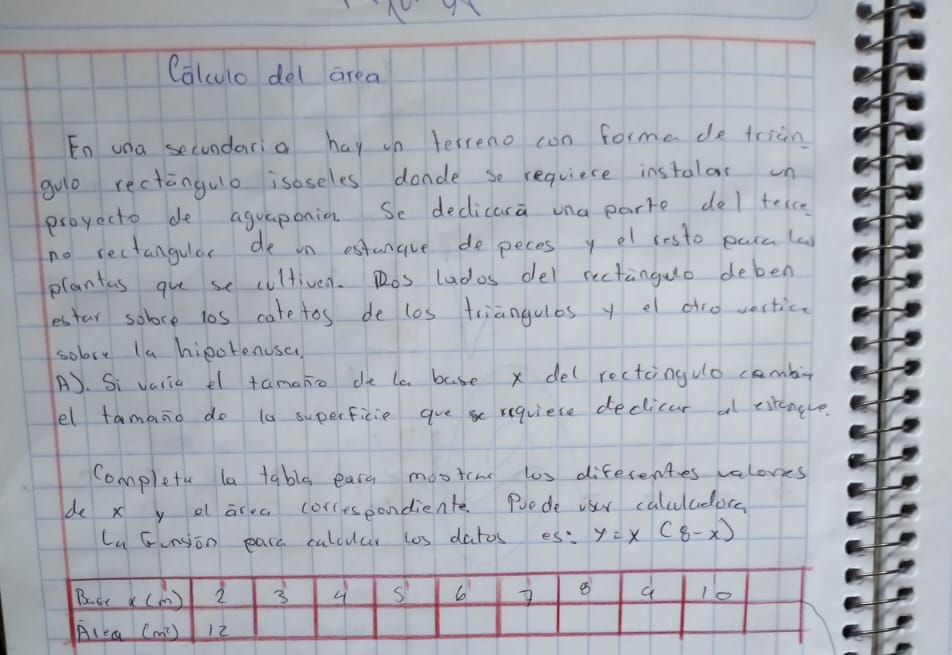 Cálculo del área
En una secundaria hay un terreno con forma de trián-
gulo rectángulo isoseles donde se requiere instalar un
proyecto de aguaponia. Se dedicará una parte del terre-
no rectangular de un estanque de peces y el resto para las
plantas que se cultiven. Dos lados del rectángulo deben
estar sobre los catetos de los triángulos y el otro vertice
sobre la hipotenusa.
A). Si varia el tamaño de la base x del rectángulo cambia
el tamaño de la superficie que se requiere dedicar al estanque.
Completa la tabla para mostrar los diferentes valores
de x y el área correspondiente. Puede usar calculadora
La Funsión para calcular los datos es: y = x (8-x)
Base x (m) 2 3 4 5 6 7 8 9 10
Área (m²) 12